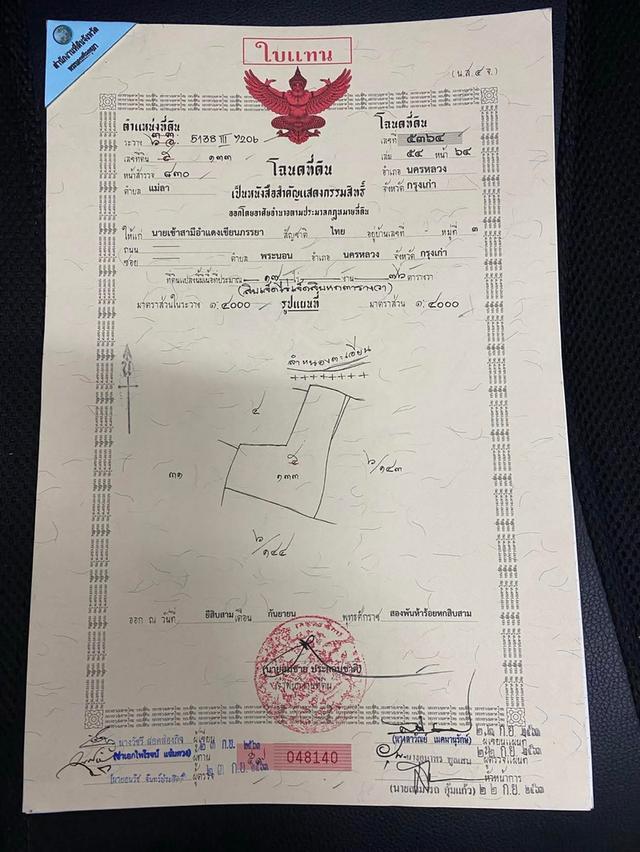 สำนักงานที่ดินจังหวัด
พระนครศรีอยุธยา
ใบแทน
(น.ส.๔ จ.)
ตำแหน่งที่ดิน
ระวาง 5138 III 7206
เลขที่ดิน ๕ ๑๓๓
หน้าสำรวจ ๘๓๐
ตำบล แม่ลา
โฉนดที่ดิน
เลขที่ ๕๓๖๔
เล่ม ๕๔ หน้า ๖๔
อำเภอ นครหลวง
จังหวัด กรุงเก่า
โฉนดที่ดิน
เป็นหนังสือสำคัญแสดงกรรมสิทธิ์
ออกโดยอาศัยอำนาจตามประมวลกฎหมายที่ดิน
ให้แก่ นายเช้าสามีอำแดงเขียนภรรยา สัญชาติ ไทย อยู่บ้านเลขที่ หมู่ที่ ๓
ถนน
ซอย ตำบล พระนอน อำเภอ นครหลวง จังหวัด กรุงเก่า
ที่ดินแปลงนี้มีเนื้อที่ประมาณ ๑๗ ไร่ งาน ๗๖ ตารางวา
(สิบเจ็ดไร่เจ็ดสิบหกตารางวา)
มาตราส่วนในระวาง ๑:๔๐๐๐ รูปแผนที่ มาตราส่วน ๑:๔๐๐๐
ลำหนองตะเอียน
๔
๕
๑๓๓
๓๑
๖/๑๔๓
๖/๑๔๔
ออก ณ วันที่ ยี่สิบสาม เดือน กันยายน พุทธศักราช สองพันห้าร้อยหกสิบสาม
(นายสมชาย ประสมชาติ)
เจ้าพนักงานที่ดิน
048140
ผู้เขียน
ผู้ทาน
ผู้ตรวจ
๒๓ ก.ย. ๒๕๖๓
๒๓ ก.ย. ๒๕๖๓
๒๒ ก.ย. ๒๕๖๓
ผู้เขียนแผนที่
๒๒ ก.ย. ๒๕๖๓
ผู้ตรวจแผนที่
หัวหน้าการ
๒๒ ก.ย. ๒๕๖๓